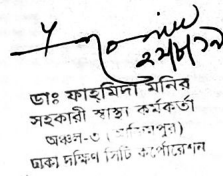 ২৭/৮/১৯
ডাঃ ফাহ্‌মিদা মনির
সহকারী স্বাস্থ্য কর্মকর্তা
অঞ্চল-৩
ঢাকা দক্ষিণ সিটি কর্পোরেশন